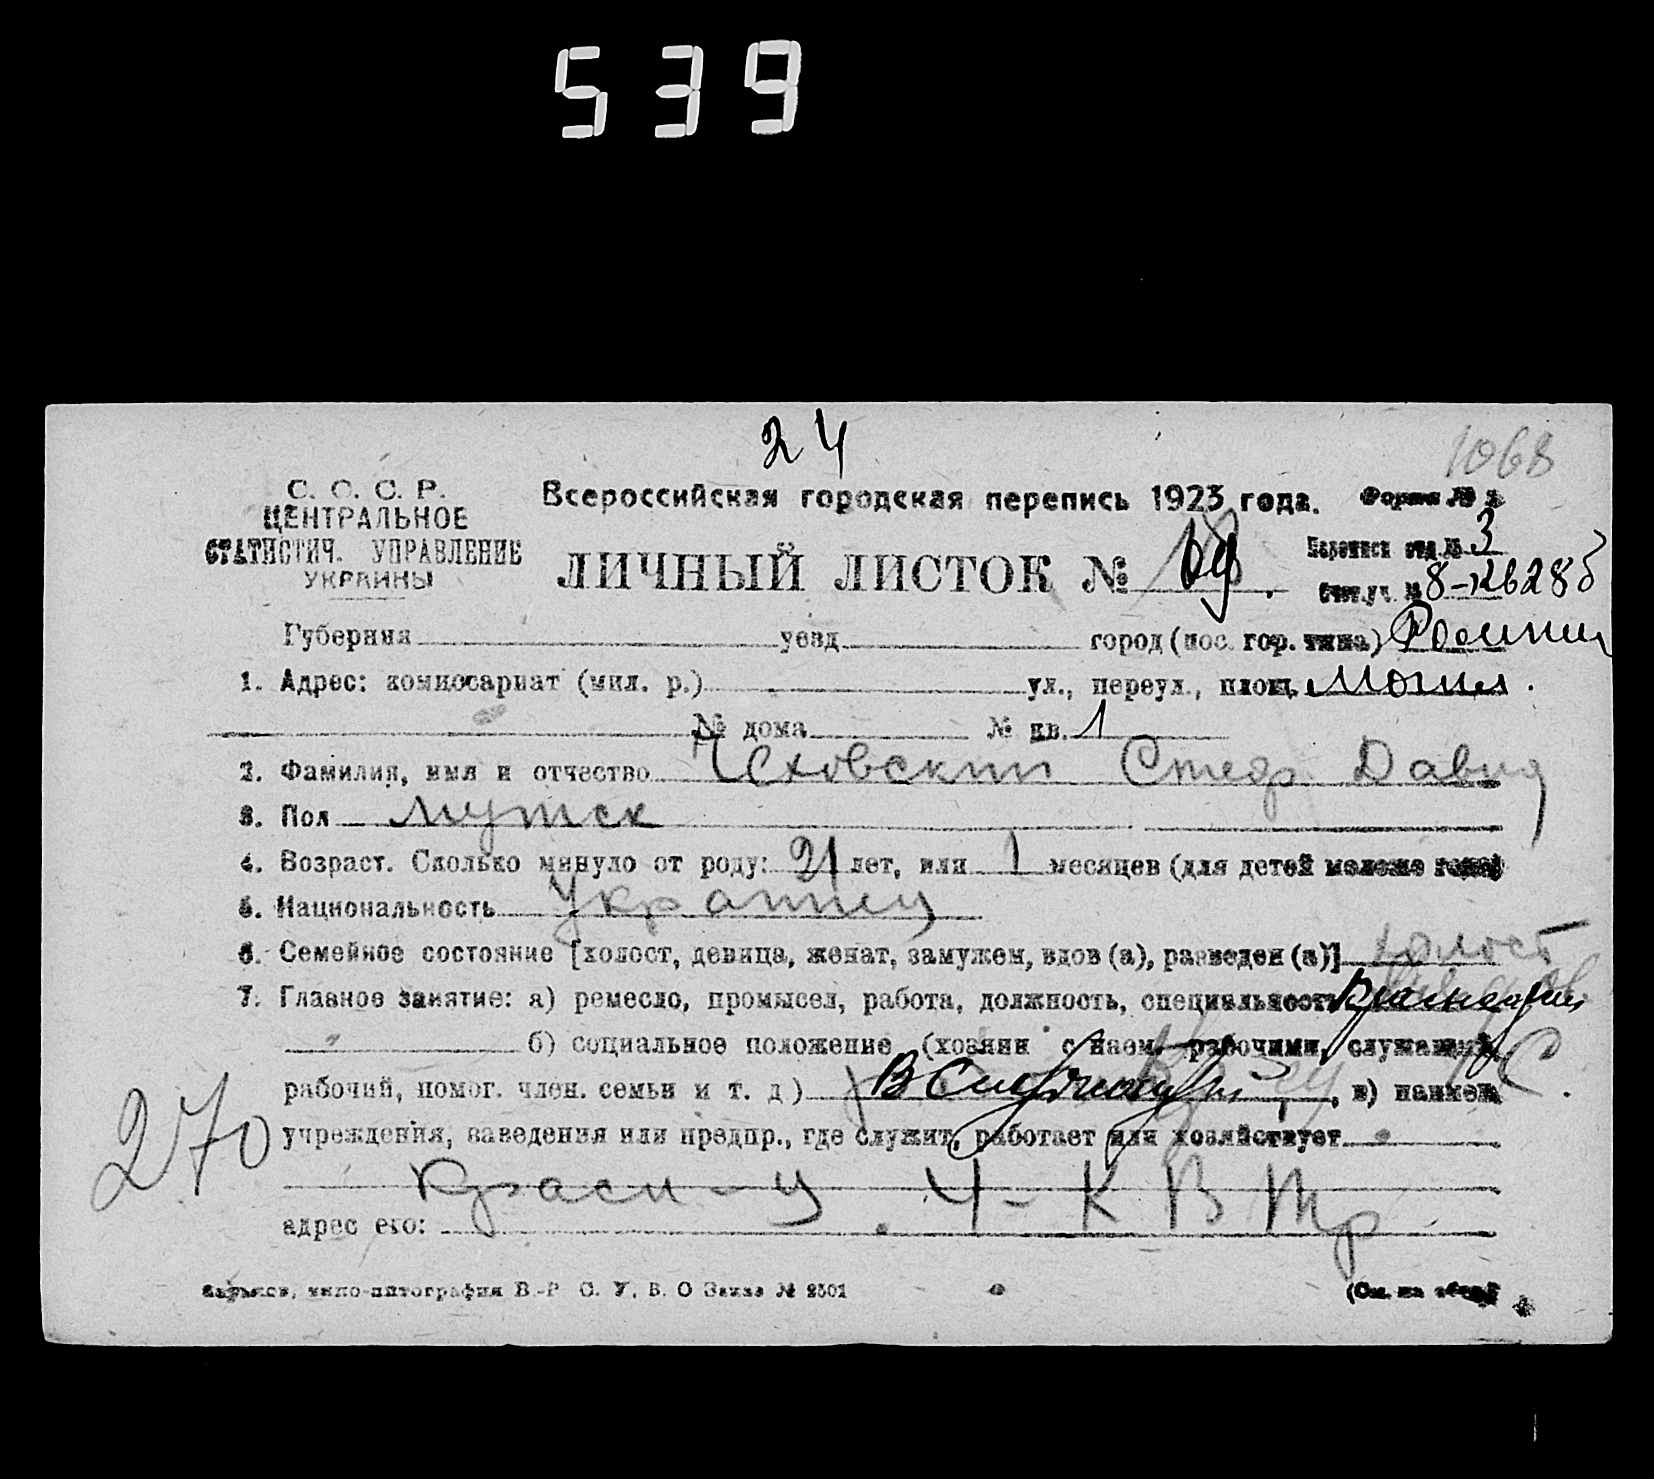 539
24
1068
С. С. С. Р.
ЦЕНТРАЛЬНОЕ
СТАТИСТИЧ. УПРАВЛЕНИЕ
УКРАИНЫ
Всероссийская городская перепись 1923 года.
Форма №
ЛИЧНЫЙ ЛИСТОК №
3
Губерния уезд город (пос. гор. типа)
1. Адрес: комиссариат (мил. р.) ул., переул., площ.
№ дома № кв. 1
2. Фамилия, имя и отчество Чеховский Стеф. Давид
3. Пол мужск
4. Возраст. Сколько минуло от роду: 21 лет, или 1 месяцев (для детей моложе года)
5. Национальность Украинец
6. Семейное состояние [холост, девица, женат, замужем, вдов (а), разведен (а)] холост
7. Главное занятие: а) ремесло, промысел, работа, должность, специальность
б) социальное положение (хозяин с наем. рабочими, служащий,
рабочий, помог. член. семьи и т. д.) , в) наимен.
учреждения, заведения или предпр., где служит, работает или хозяйствует
270
адрес его:
Харьков, типо-литография В.-Р. С. У. В. О Заказ № 2501
(См. на обор.)